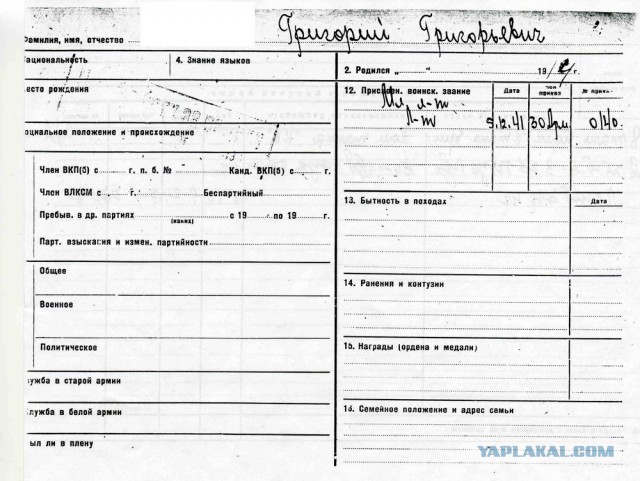 Григорий Григорьевич
Фамилия, имя, отчество
Национальность
4. Знание языков
2. Родился „ “ 19 г.
место рождения
12. Присвоен. воинск. звание
Дата
чей приказ
№ прика
Мл. л-т
Л-т 9.12.41 30 Арм. 0140
социальное положение и происхождение
Член ВКП(б) с г. п. б. № Канд. ВКП(б) с г.
Член ВЛКСМ с г. Беспартийный
Пребыв. в др. партиях с 19 по 19 г.
(каких)
Парт. взыскания и измен. партийности
13. Бытность в походах
Дата
Общее
Военное
Политическое
14. Ранения и контузии
15. Награды (ордена и медали)
служба в старой армии
служба в белой армии
был ли в плену
16. Семейное положение и адрес семьи
YAPLAKAL.COM